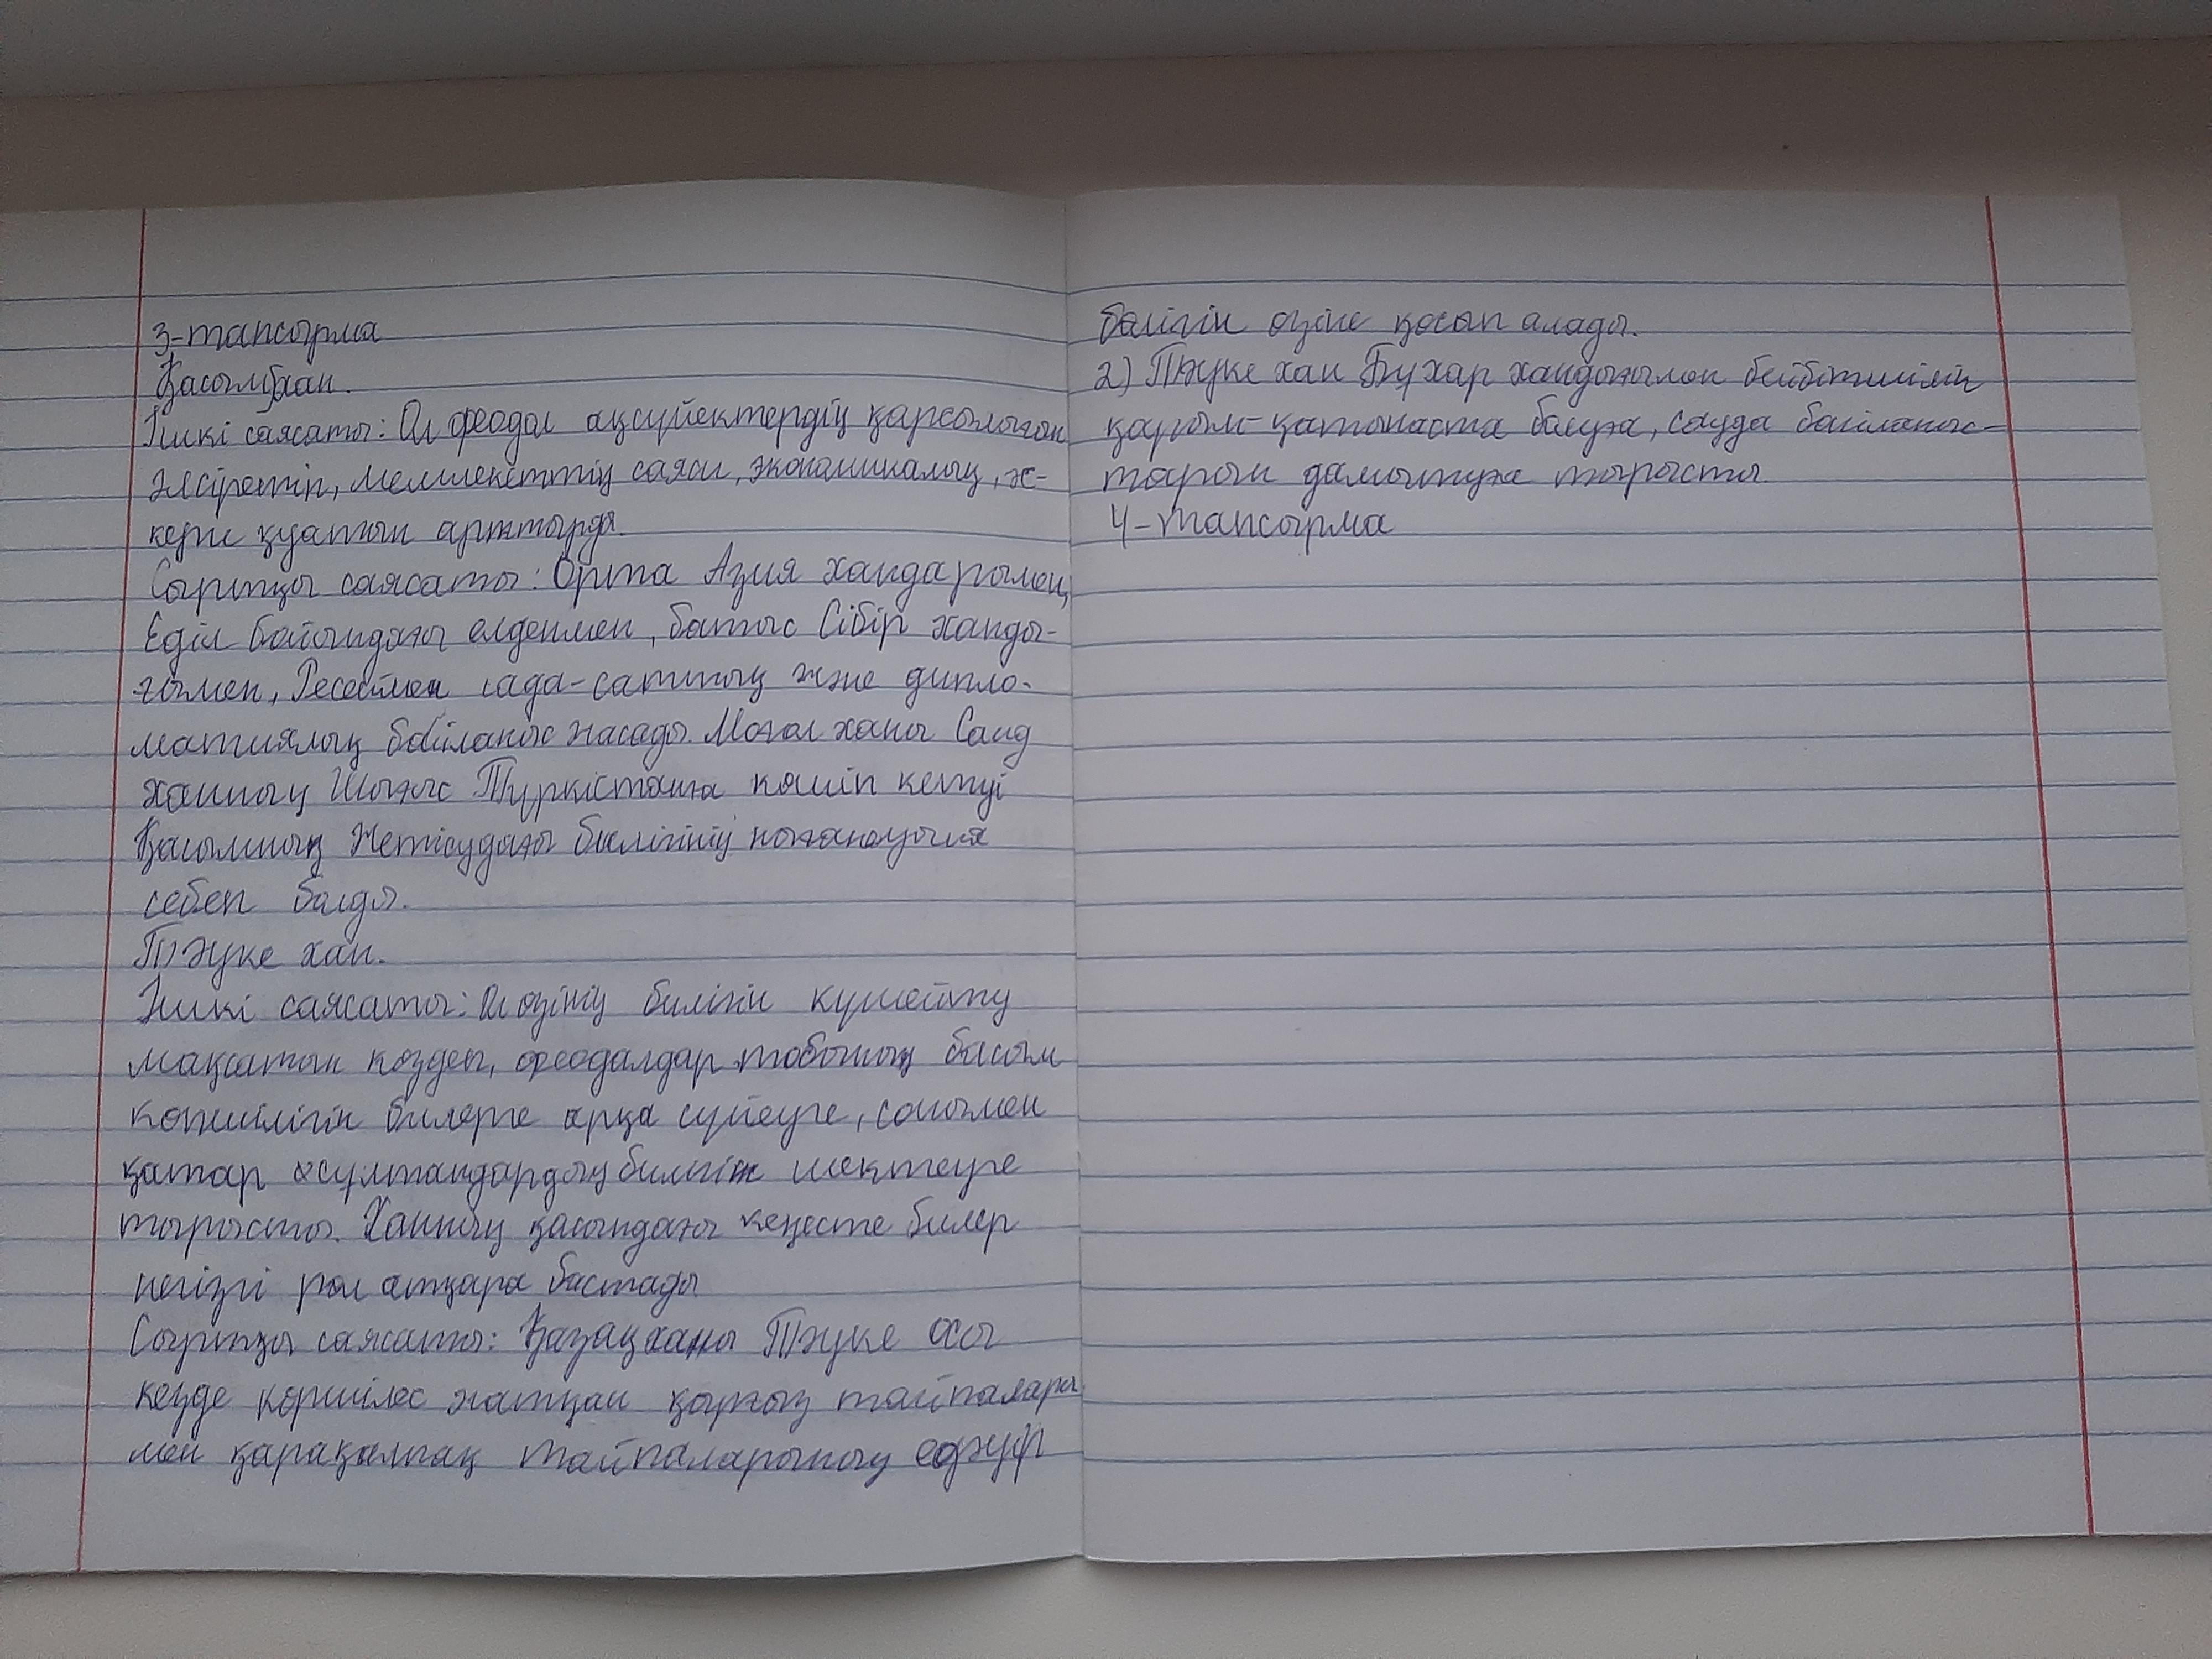 3-тапсырма
Қасым хан.
Ішкі саясаты: Ол феодал ақсүйектердің қарсылығын
әлсіретіп, мемлекеттің саяси, экономикалық, әс-
кери қуатын арттырды.
Сыртқы саясаты: Орта Азия хандарымен,
Еділ бойындағы елденмен, батыс Сібір ханды-
ғымен, Ресеймен сада-саттық және дипло-
матиялық байланыс жасады. Моғол ханы Саид
ханның Шығыс Түркістанға көшіп кетуі
Қасымның Жетісудағы билігінің нығаюына
себеп болды.
Тәуке хан.
Ішкі саясаты: Ол өзінің билігін күшейту
мақсатын көздеп, феодалдар тобының басым
көпшілігін билерге арқа сүйеуге, сонымен
қатар сұлтандардың билігін шектеуге
тырысты. Ханның қасындағы кеңесте билер
негізгі рөл атқара бастады
Сыртқы саясаты: Қазақ ханы Тәуке осы
кезде көршілес жатқан қырғыз тайпалары
мен қарақалпақ тайпаларының едәуір
бөлігін өзіне қосып алады.
2) Тәуке хан Бұхар хандығымен бейбітшілік
қарым-қатынаста болуға, сауда байланыс-
тарын дамытуға тырысты.
4-тапсырма